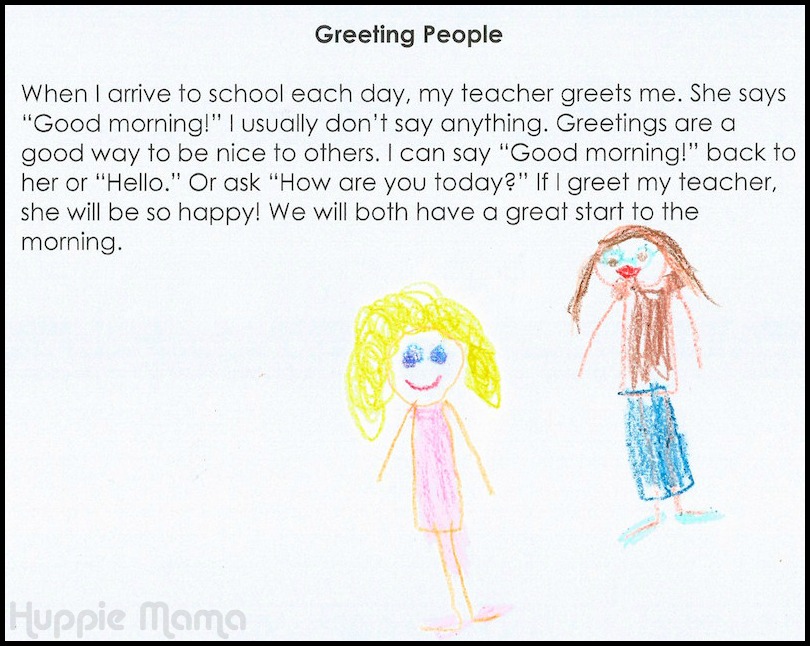 Greeting People
When I arrive to school each day, my teacher greets me. She says
“Good morning!” I usually don’t say anything. Greetings are a
good way to be nice to others. I can say “Good morning!” back to
her or “Hello.” Or ask “How are you today?” If I greet my teacher,
she will be so happy! We will both have a great start to the
morning.
Huppie Mama